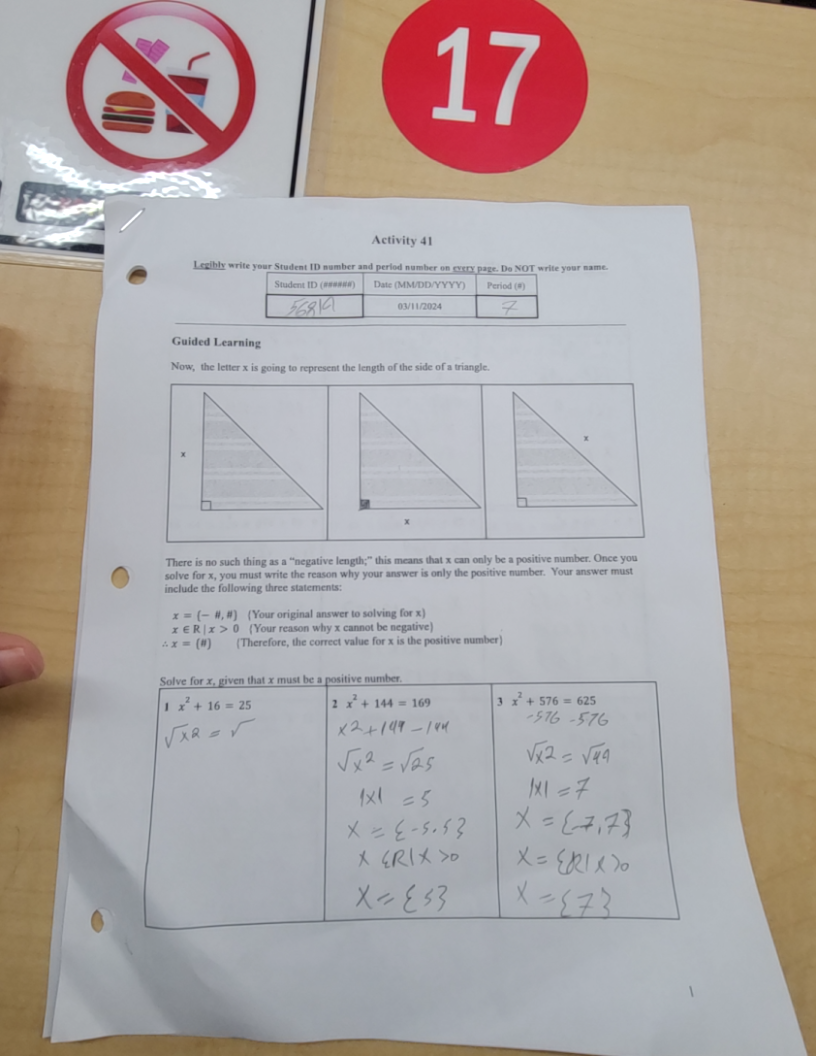 17
Activity 41
Legibly write your Student ID number and period number on every page. Do NOT write your name.
Student ID (######) Date (MM/DD/YYYY) Period (#)
03/11/2024 7
Guided Learning
Now, the letter x is going to represent the length of the side of a triangle.
x
x
x
There is no such thing as a “negative length;” this means that x can only be a positive number. Once you
solve for x, you must write the reason why your answer is only the positive number. Your answer must
include the following three statements:
x = {− #, #} (Your original answer to solving for x)
x ∈ R | x > 0 (Your reason why x cannot be negative)
∴ x = {#} (Therefore, the correct value for x is the positive number)
Solve for x, given that x must be a positive number.
1 x² + 16 = 25
√x2 = √
2 x² + 144 = 169
x2 + 144 - 144
√x² = √25
|x| = 5
x = {-5.5}
x {R| x >0
x = {5}
3 x² + 576 = 625
-576 -576
√x2 = √49
|x| = 7
x = {-7,7}
x = {R| x >0
x = {7}
1